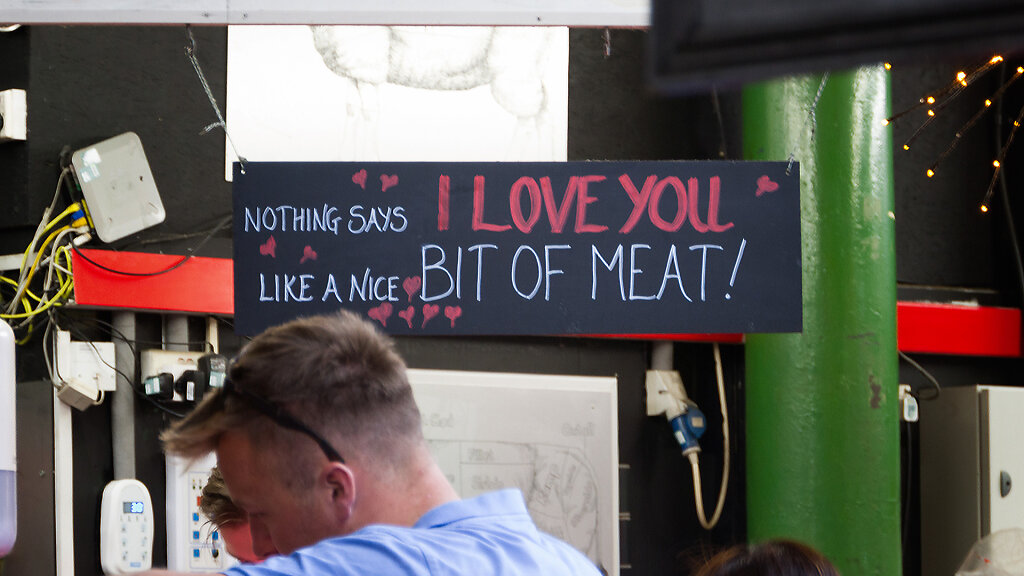 NOTHING SAYS I LOVE YOU
LIKE A NICE BIT OF MEAT!